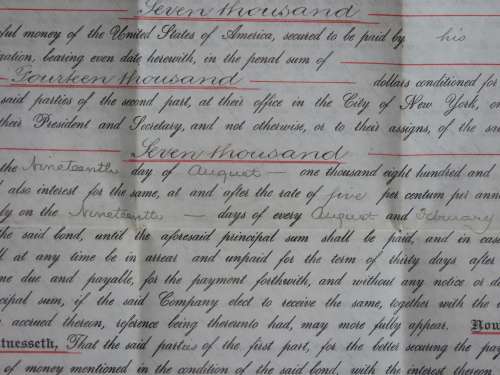 Seven thousand
ful money of the United States of America, secured to be paid by his
gation, bearing even date herewith, in the penal sum of
Fourteen thousand dollars conditioned for
said parties of the second part, at their office in the City of New York, or
their President and Secretary, and not otherwise, or to their assigns, of the su
Seven thousand
the Nineteenth day of August one thousand eight hundred and
l also interest for the same, at and after the rate of five per centum per annu
ly on the Nineteenth days of every August and February
the said bond, until the aforesaid principal sum shall be paid, and in case
ll at any time be in arrear and unpaid for the term of thirty days after
me due and payable, for the payment forthwith, and without any notice or de
cipal sum, if the said Company elect to receive the same, together with the
accrued thereon, reference being thereunto had, may more fully appear. Now
itnesseth, That the said parties of the first part, for the better securing the pay
of money mentioned in the condition of the said bond, with the interest thereon